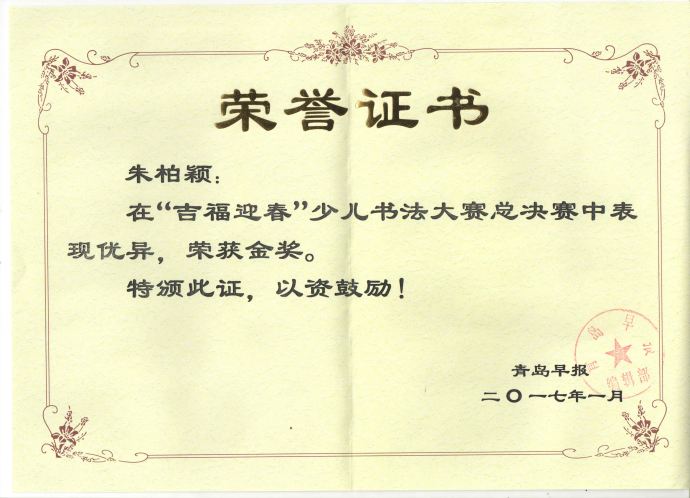 荣誉证书
朱柏颖：
在“吉福迎春”少儿书法大赛总决赛中表
现优异，荣获金奖。
特颁此证，以资鼓励！
青岛早报
二〇一七年一月
编辑部